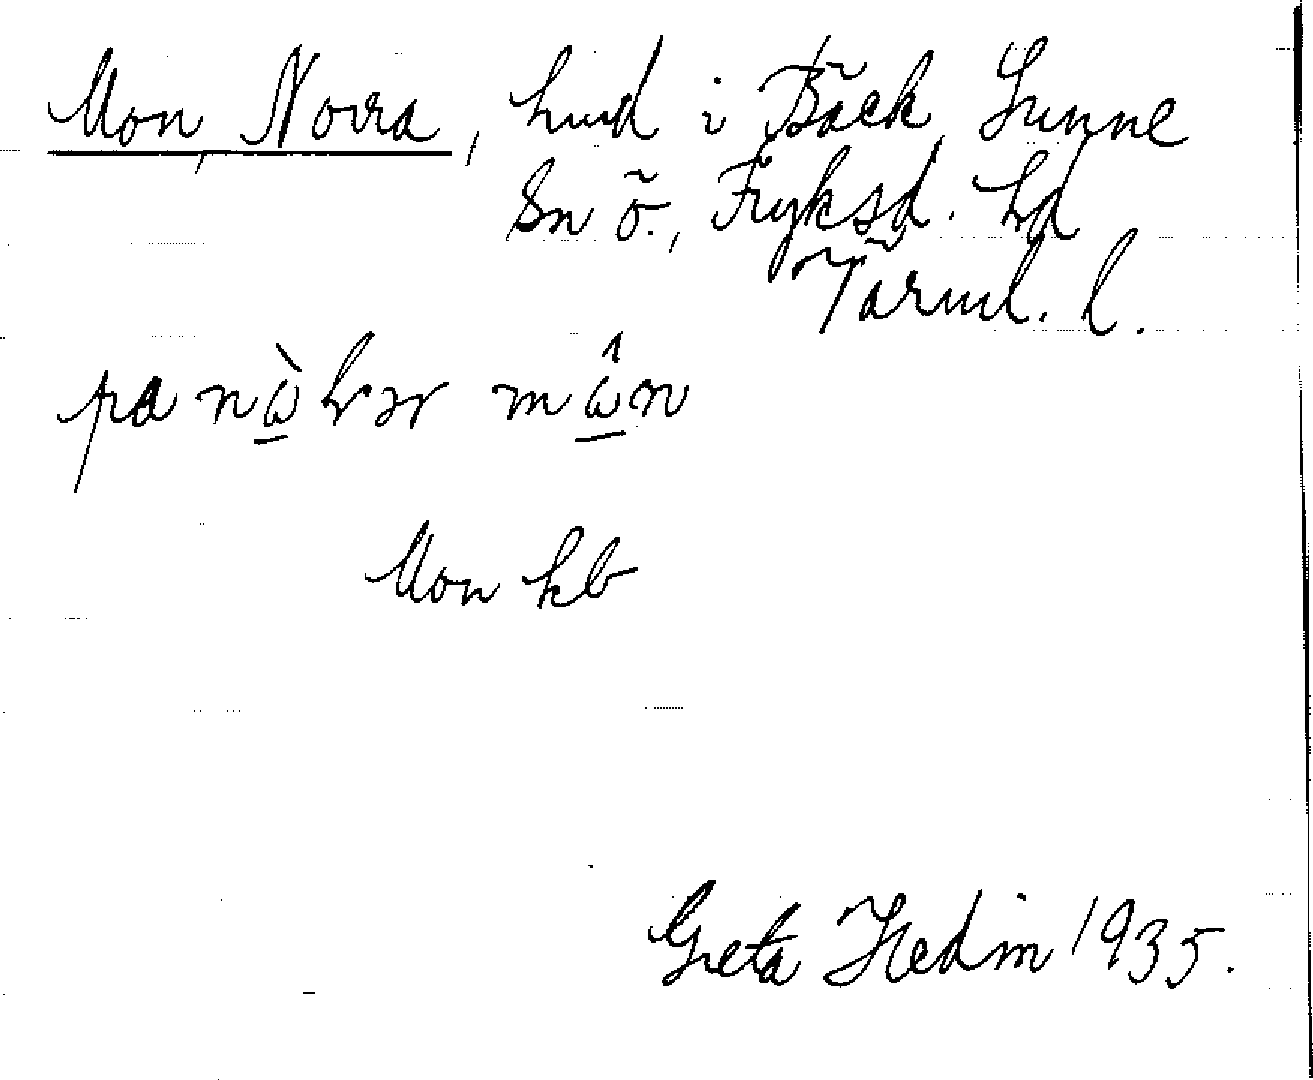 Mon, Norra, hmd i Bäck, Sunne
Sn ö., Fryksd. hd
Värml. l.
pa nὼ̲rər mω̲̂n
Mon kb
Greta Hedin 1935.